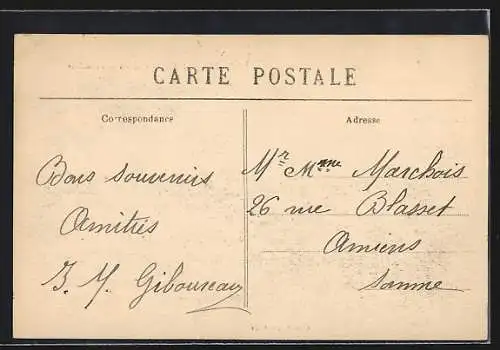 CARTE POSTALE
Correspondance
Bons souvenirs
Amitiés
J. Y. Giboureau
Adresse
Mr Mme Marchois
26 rue Blasset
Amiens
Somme